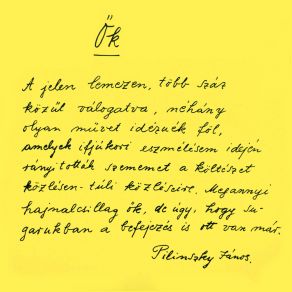 Ők
A jelen lemezen, több száz
közül válogatva, néhány
olyan művet idéznék föl,
amelyek ifjúkori eszmélésem idején
rányitották szememet a költészet
közlésen-túli közléseire. Megannyi
hajnalcsillag ők, de úgy, hogy su-
garukban a befejezés is ott van már.
Pilinszky János.